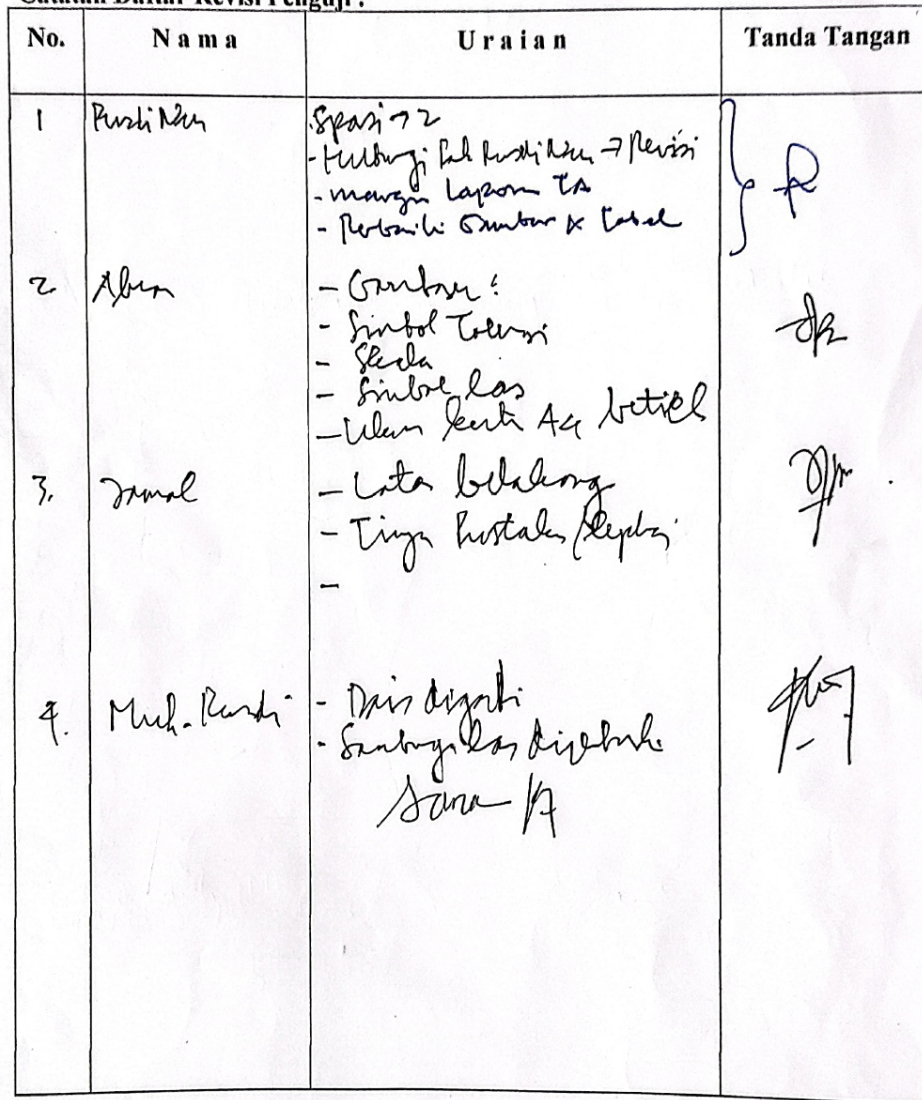 Catatan Daftar Revisi Penguji :
No. Nama Uraian Tanda Tangan
1 Rusdi Nur Spasi → 2
- Hubungi Pak Rusdi Nur → Revisi
- margin Laporan TA
- Perbaiki Gambar & Tabel
2. Abram - Gambar :
- Simbol Toleransi
- Skala
- Simbol las
- Ukuran kertas A4
3. Jamal - Latar belakang
- Tinja Pustaka
-
4. Muh. Rusdi - diganti
- las